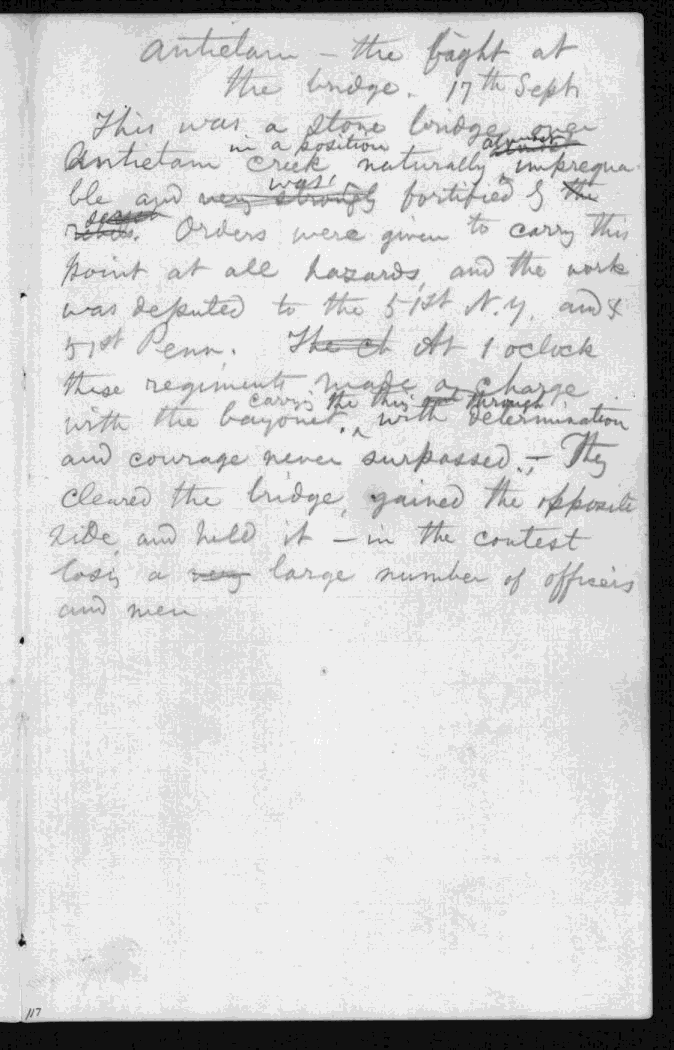 Antietam – the fight at
the bridge. 17th Sept
This was a stone bridge over
in a position
Antietam creek naturally impregna
was
ble and very strongly fortified & the
secesh
rebels. Orders were given to carry this
point at all hazards, and the work
was deputed to the 51st N.Y. and
51st Penn. The ch At 1 oclock
these regiments made a charge
carryg the thing through
with the bayonet, with determination
and courage never surpassed. – They
cleared the bridge, gained the opposite
side and held it – in the contest
losig a very large number of officers
and men
117